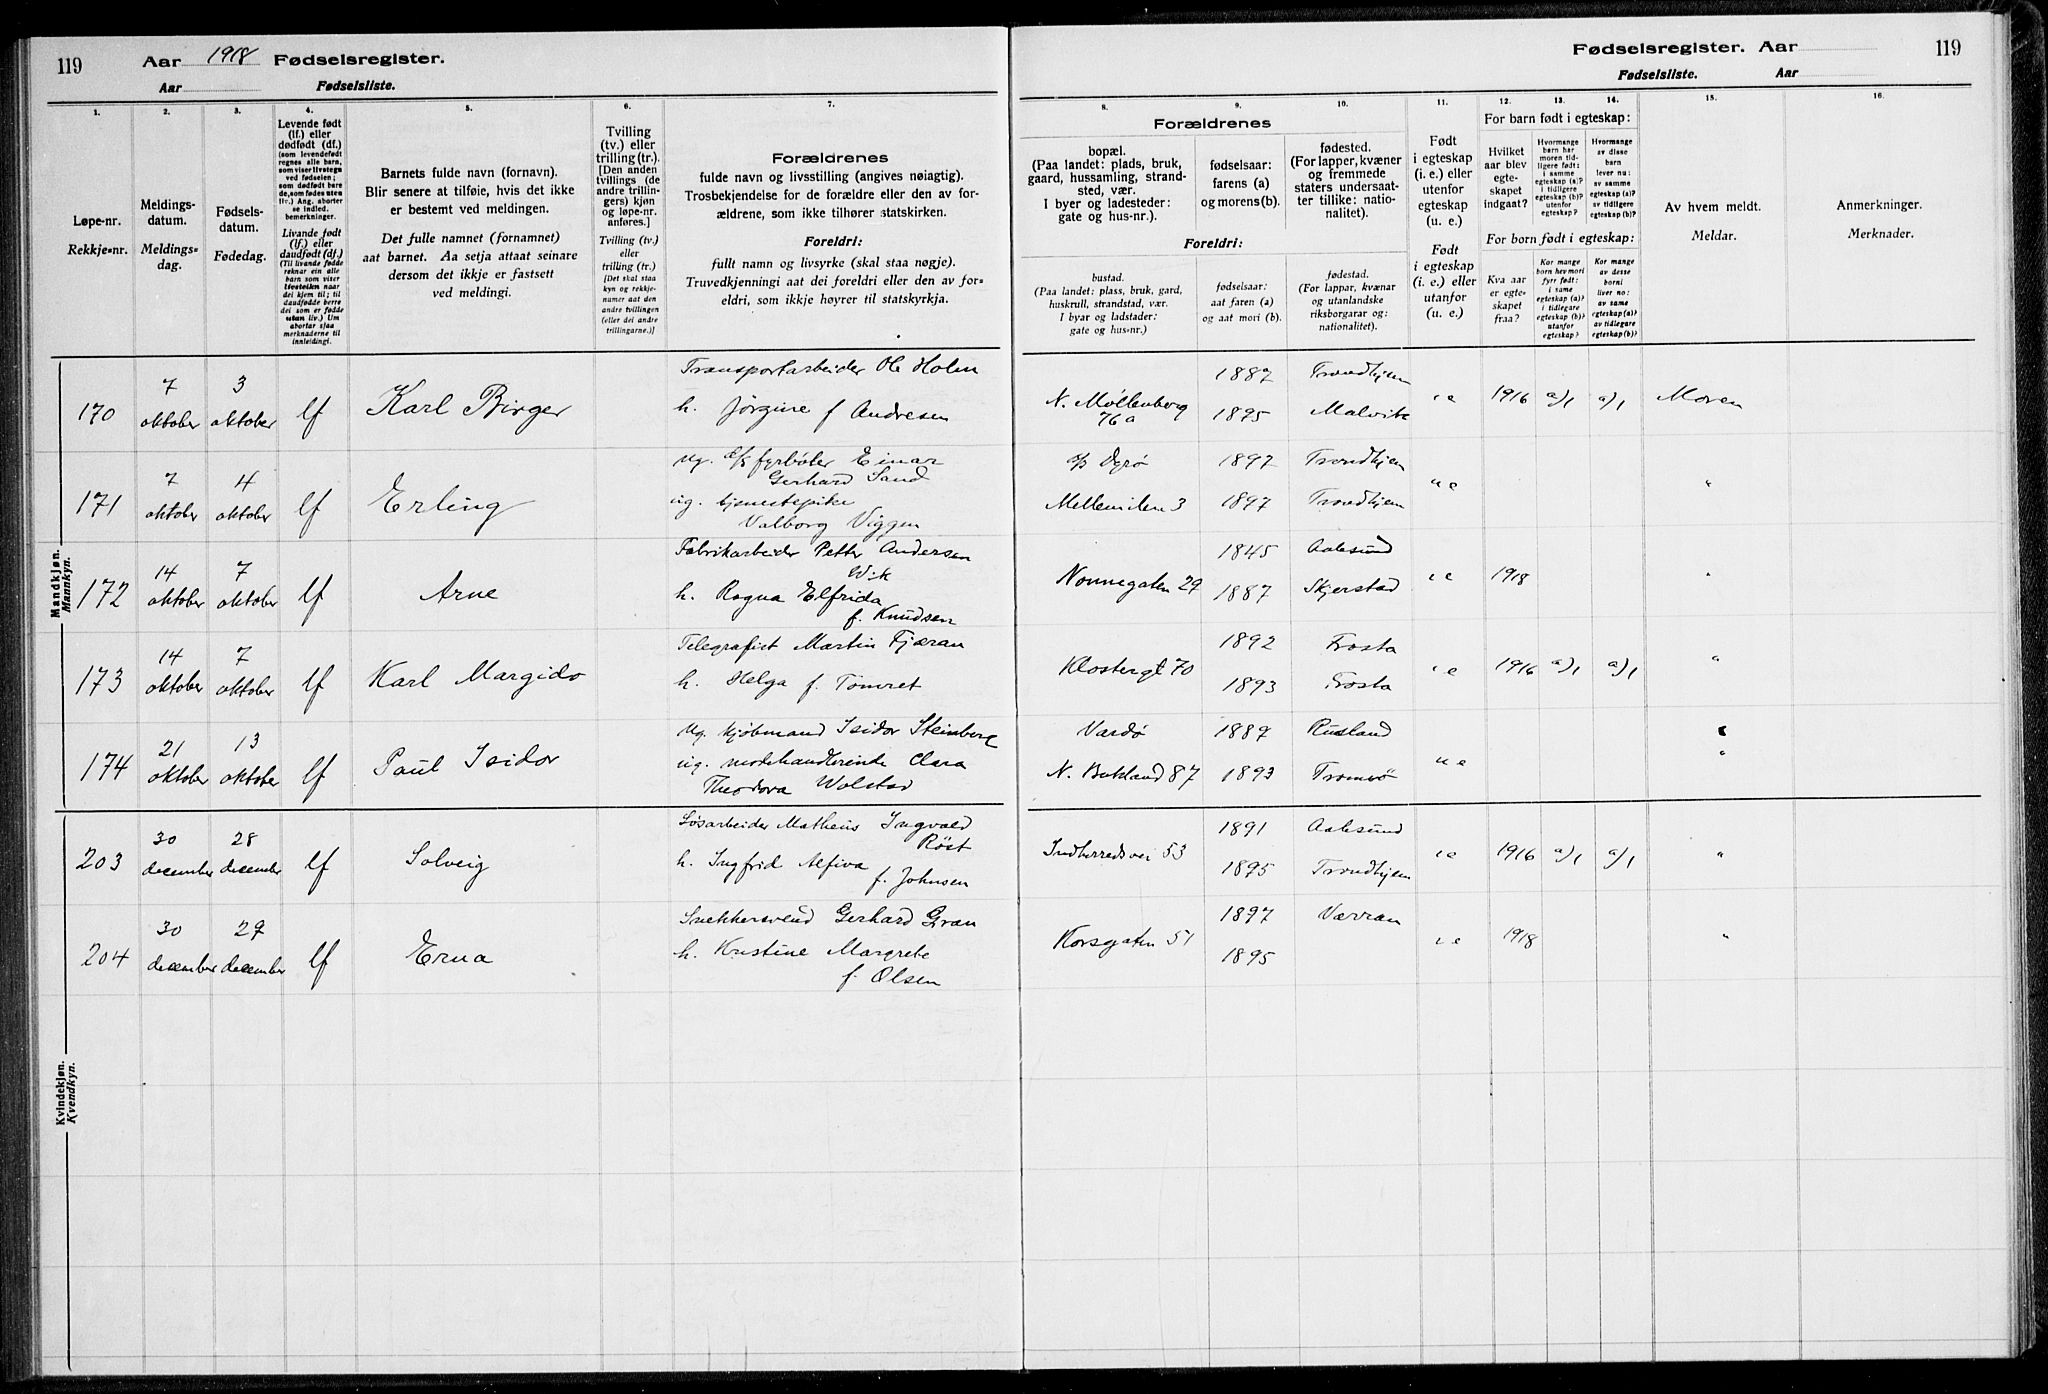 119 Aar 1918 Fødselsregister.
Aar Fødselsliste.
Fødselsregister. Aar 119
Fødselsliste. Aar
1. 2. 3. 4. 5. 6. 7. 8. 9. 10. 11. 12. 13. 14. 15. 16.
Løpe-nr.
Rekkje-nr.
Meldings-
datum.
Meldings-
dag.
Fødsels-
datum.
Fødedag.
Levende født
(lf.) eller
dødfødt (df.)
(som levendefødt
regnes alle barn,
som viser livstegn
ved fødselen;
som dødfødt bare
de, som fødes uten
liv.) Ang. aborter
se indled.
bemerkninger.
Livande født
(lf.) eller
daudfødt (df.)
(Til livande fødde
reknar ein alle
born som viser
livsteikn naar
dei kjem til; til
daudfødde berre
dei som er fødde
utan liv.) Um
abortar sjaa
merknaderne til
innleidingi.
Barnets fulde navn (fornavn).
Blir senere at tilføie, hvis det ikke
er bestemt ved meldingen.
Det fulle namnet (fornamnet)
aat barnet. Aa setja attaat seinare
dersom det ikkje er fastsett
ved meldingi.
Tvilling
(tv.) eller
trilling (tr.).
[Den anden
tvillings (de
andre trillin-
gers) kjøn
og løpe-nr.
anføres.]
Tvilling (tv.)
eller
trilling (tr.)
[Det skal staa
kyn og rekkje-
numer aat den
andre tvillingen
(eller dei andre
trillingarne.)]
Forældrenes
fulde navn og livsstilling (angives nøiagtig).
Trosbekjendelse for de forældre eller den av for-
ældrene, som ikke tilhører statskirken.
Foreldri:
fullt namn og livsyrke (skal staa nøgje).
Truvedkjenningi aat dei foreldri eller den av for-
eldri, som ikkje høyrer til statskyrkja.
Forældrenes
bopæl.
(Paa landet: plads, bruk,
gaard, hussamling, strand-
sted, vær.
I byer og ladesteder:
gate og hus-nr.).
fødselsaar:
farens (a)
og morens (b).
fødested.
(For lapper, kvæner
og fremmede
staters undersaat-
ter tillike: natio-
nalitet).
Foreldri:
bustad.
(Paa landet: plass, bruk, gard,
huskrull, strandstad, vær.
I byar og ladstader:
gate og hus-nr.)
fødselsaar:
aat faren (a)
og aat mori (b).
fødestad.
(For lappar, kvænar
og utanlandske
riksborgarar og:
nationalitet).
Født
i egteskap
(i. e.) eller
utenfor
egteskap
(u. e.)
Født
i egteskap
(i. e.) eller
utanfor
(u. e.)
For barn født i egteskap:
Hvilket
aar blev
egte-
skapet
indgaat?
Hvormange
barn har
moren tid-
ligere født:
i samme
egteskap (a)?
i tidligere
egteskap (b)?
utenfor
egteskap?
Hvormange
av disse
barn
lever nu:
av samme
egteskap (a)?
av tidligere
egteskap (b)?
For born født i egteskap:
Kva aar
er egte-
skapet
fraa?
Kor mange
born hev mori
fyrr født:
i same
egteskap (a)?
i tidlegare
egteskap (b)?
utanfor
egteskap?
Kor mange
av desse
borni
liver no:
av same
egteskap (a)?
av tidlegare
egteskap (b)?
Av hvem meldt.
Meldar.
Anmerkninger.
Merknader.
Mandkjøn.
Mannkyn.
170 7 oktober 3 oktober lf Karl Birger Transportarbeider Ole Holm
h. Jørgine f Andresen
N. Møllenberg 76a 1887 Trondhjem
1895 Malvik
i e 1916 a/1 a/1 Moren
171 7 oktober 4 oktober lf Erling ug. d/s fyrbøter Einar
Gerhard Sand
ug. tjenestepike
Valborg Viggen
d/s Dyrø 1897 Trondhjem
Mellemilen 3 1897 Trondhjem
u e "
172 14 oktober 7 oktober lf Arne Fabrikarbeider Petter Andersen
Wik
h. Ragna Elfrida
f. Knudsen
Nonnegaten 29 1845 Aalesund
1887 Skjerstad
i e 1918 "
173 14 oktober 7 oktober lf Karl Margido Telegrafist Martin Fjæran
h. Helga f. Tømret
Klostergt 70 1892 Frosta
1893 Frosta
i e 1916 a/1 a/1 "
174 21 oktober 13 oktober lf Paul Isidor ug. kjøbmand Isidor Steinberg
ug. modehandlerinde Clara
Theodora Wolstad
Vardø 1889 Rusland
N. Bakland 87 1893 Tromsø
u e "
Kvindekjøn.
Kvendkyn.
203 30 december 28 december lf Solveig Løsarbeider Matheus Ingvald
Røst
h. Ingfrid Alfiva
f. Johnsen
Indherredsvei 53 1891 Aalesund
1895 Trondhjem
i e 1916 a/1 a/1 "
204 30 december 29 december lf Erna Snekkersvend Gerhard Gran
h. Kristine Margrete
f. Olsen
Korsgaten 51 1897 Værran
1895
i e 1918 "